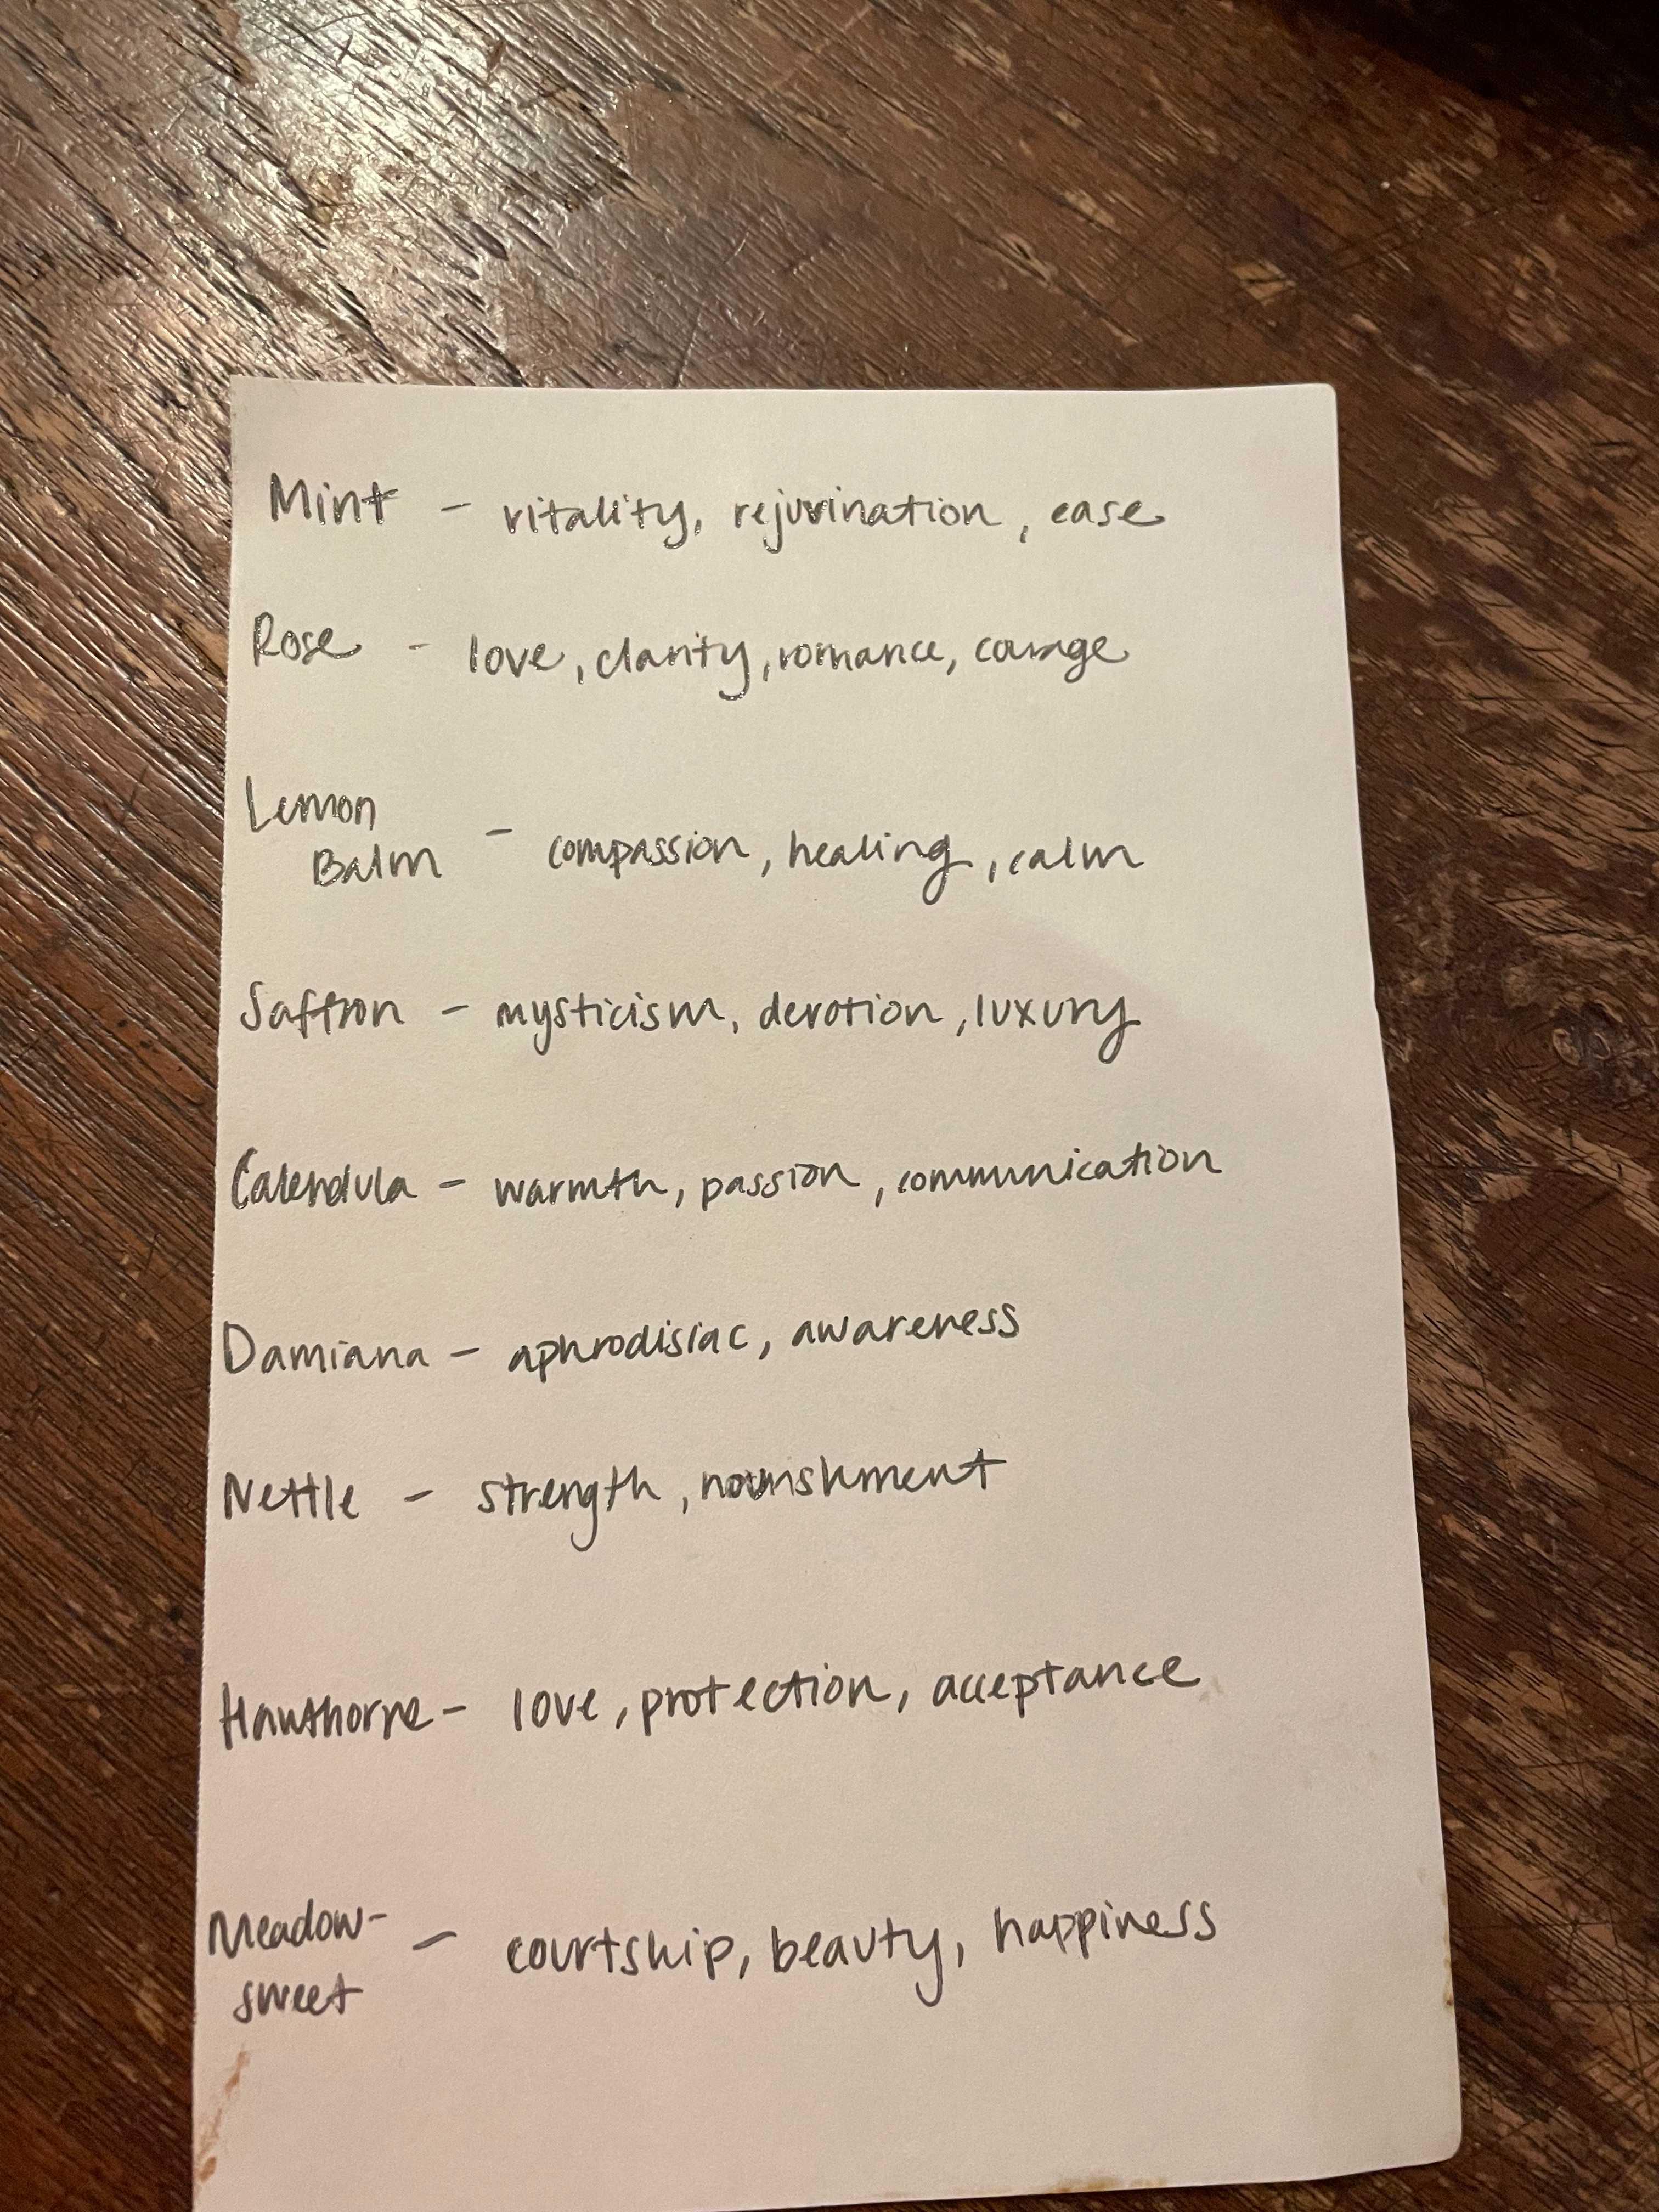 Mint - vitality, rejuvination, ease
Rose - love, clarity, romance, courage
Lemon
Balm - compassion, healing, calm
Saffron - mysticism, devotion, luxury
Calendula - warmth, passion, communication
Damiana - aphrodisiac, awareness
Nettle - strength, nourishment
Hawthorne - love, protection, acceptance
Meadow-
sweet - courtship, beauty, happiness